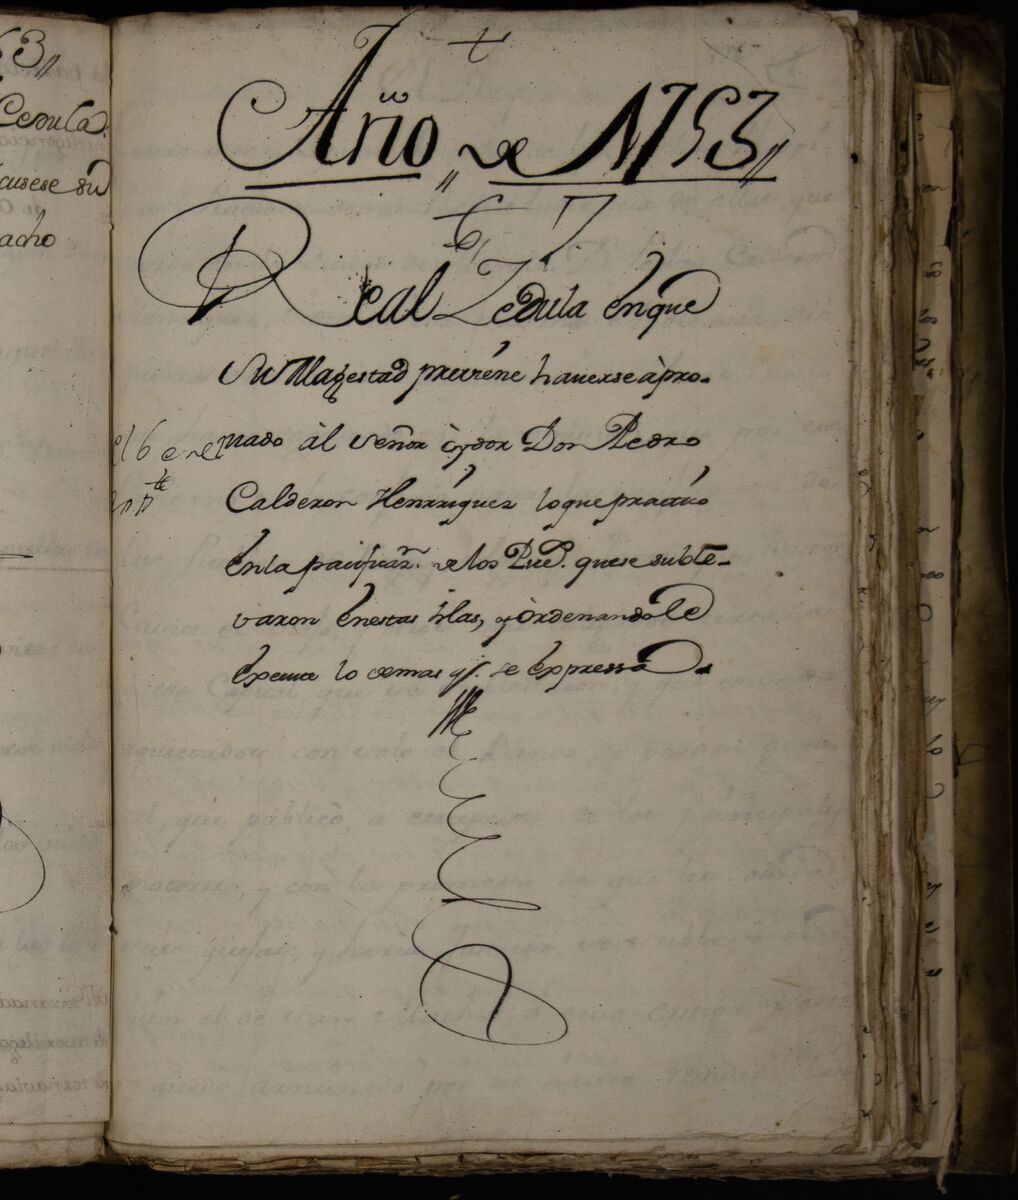 63,,
Cedula.
cusese su
acho
Año,, de 1753,,
6, 7.
Real Zedula en que
Su Magestad previene haverse àpro-
vado àl señor òydor Don Pedro
Calderon Henrriquez lo que practico
en la pacificaz.n de los Pue.s que se suble-
varon en estas Yslas, y òrdenandole
execute lo demas q.e se expressa.
el 6 en el